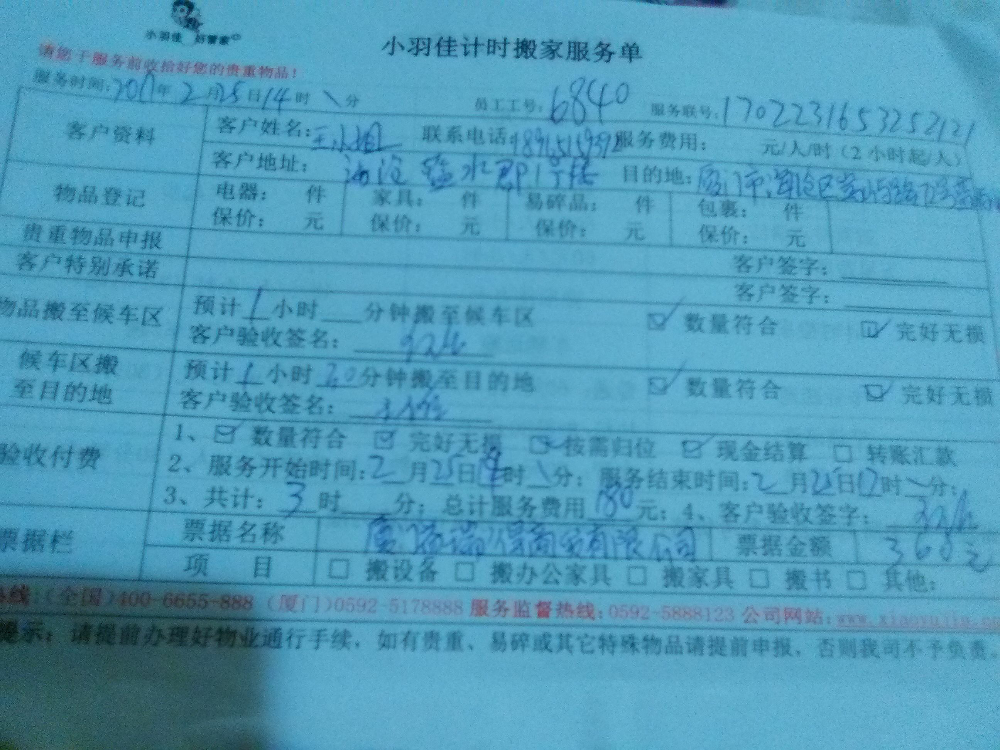 小羽佳 好管家
小羽佳计时搬家服务单
请您于服务前收拾好您的贵重物品!
服务时间:2017年2月25日14时 分 员工工号:6840 服务联号:1702231653252121
客户资料 客户姓名:王小姐 联系电话: 服务费用: 元/人/时(2小时起/人)
客户地址:海沧 目的地:厦门市海沧区
物品登记 电器: 件 家具: 件 易碎品: 件 包裹: 件
保价: 元 保价: 元 保价: 元 保价: 元
贵重物品申报 客户签字:
客户特别承诺 客户签字:
物品搬至候车区 预计1小时 分钟搬至候车区 ☑ 数量符合 ☑ 完好无损
客户验收签名:
候车区搬至目的地 预计1小时30分钟搬至目的地 ☑ 数量符合 ☑ 完好无损
客户验收签名:
验收付费 1、☑ 数量符合 ☑ 完好无损 ☑ 按需归位 ☑ 现金结算 □ 转账汇款
2、服务开始时间:2月25日14时 分;服务结束时间:2月25日17时 分;
3、共计:3时 分;总计服务费用180元;4、客户验收签字:
票据栏 票据名称 有限公司 票据金额 360元
项 目 □ 搬设备 □ 搬办公家具 □ 搬家具 □ 搬书 □ 其他:
热线:(全国)400-6655-888 (厦门)0592-5178888 服务监督热线:0592-5888123 公司网站:www.xiaoyujia.
提示:请提前办理好物业通行手续,如有贵重、易碎或其它特殊物品请提前申报,否则我司不予负责。